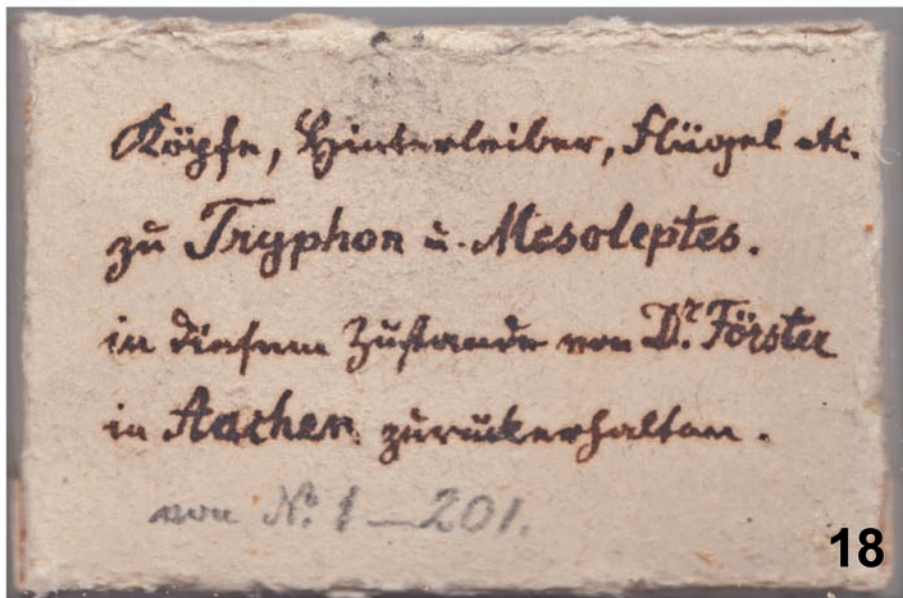 Köpfe, Hinterleiber, Flügel etc.
zu Tryphon u. Mesoleptes.
in diesem Zustande von Dr. Förster
in Aachen zurückerhalten.
von No. 1 — 201.
18